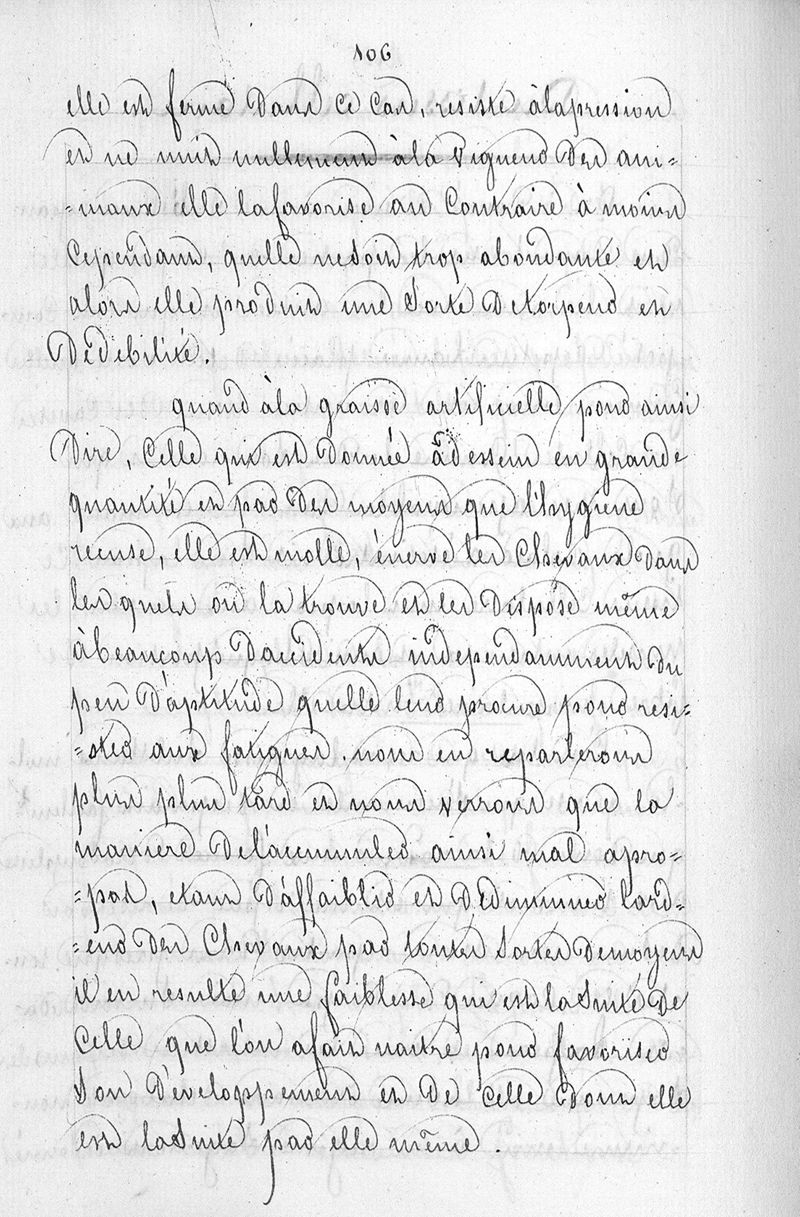 106
elle est ferme dans ce cas, resiste àlapression
et ne nuit nullement àla vigueur des ani=
=maux elle lafavorise au Contraire à moins
Cependant, quelle nesoit trop abondante et
alors elle produit une sorte detorpeur et
Dédebilité.
quand àla graisse artificielle pour ainsi
Dire, Celle qui est donnée àdessein en grande
quantité et par des moyens que l'hygiene
recuse, elle est molle, énerve les Chevaux dans
les quels on la trouve et les dispose même
àbeaucoup D'accidents independamment du
peu D'aptitude quelle leur procure pour resi=
=ster aux fatigues. nous en reparlerons
plus plus tard et nous verrons que la
maniere Del'accumuler ainsi mal apro=
=pos, etant D'affaiblir et Dediminuer l'ard=
=eur des Chevaux par toutes sortes Demoyens
il en resulte une faiblesse qui est lasuite de
Celle que l'on afait naitre pour favoriser
son Developpement et de celle dont elle
est lasuite par elle même.